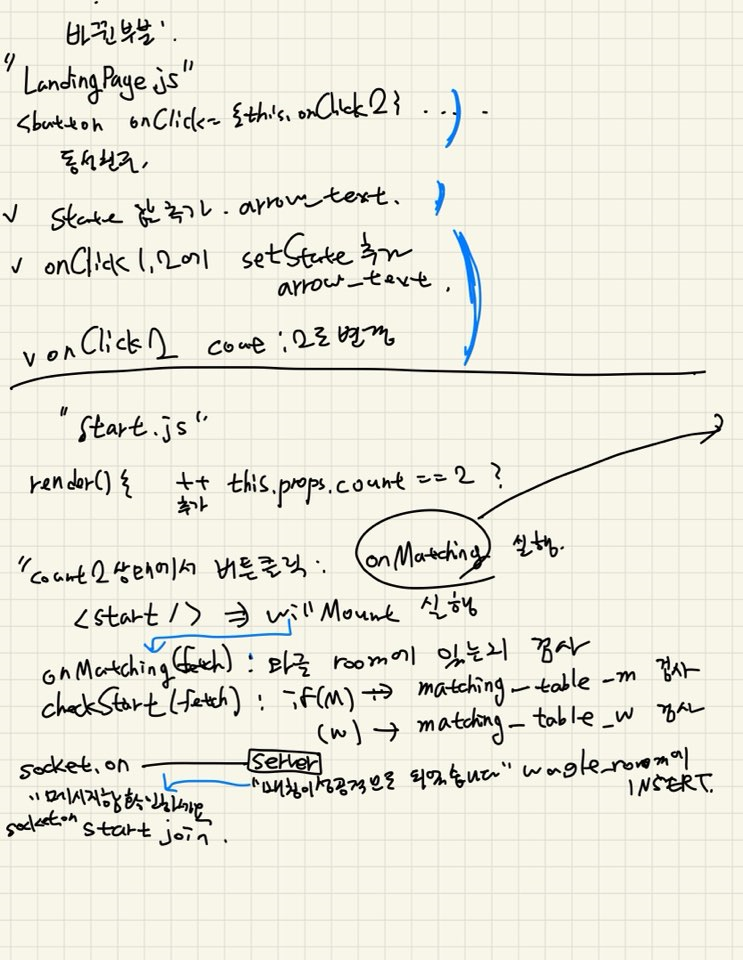 바뀐부분:
"LandingPage.js"
<button onClick={this.onClick2} ....
동성친구,
✓ State 값 추가. arrow_text.
✓ onClick 1,2에 setState 추가
arrow_text.
✓ onClick2 count:2로 변경
"Start.js"
render(){ ++ this.props.count == 2 ?
추가
onMatching 실행.
"count2상태에서 버튼클릭:
<start /> ⇒ willMount 실행
onMatching(fetch): 와글 room에 있는지 검사
checkStart(fetch): if(M) → matching_table_m 검사
(w) → matching_table_w 검사
socket.on server
"매칭이성공적으로 되었습니다" wagle_room에
INSERT.
socket.on start join.